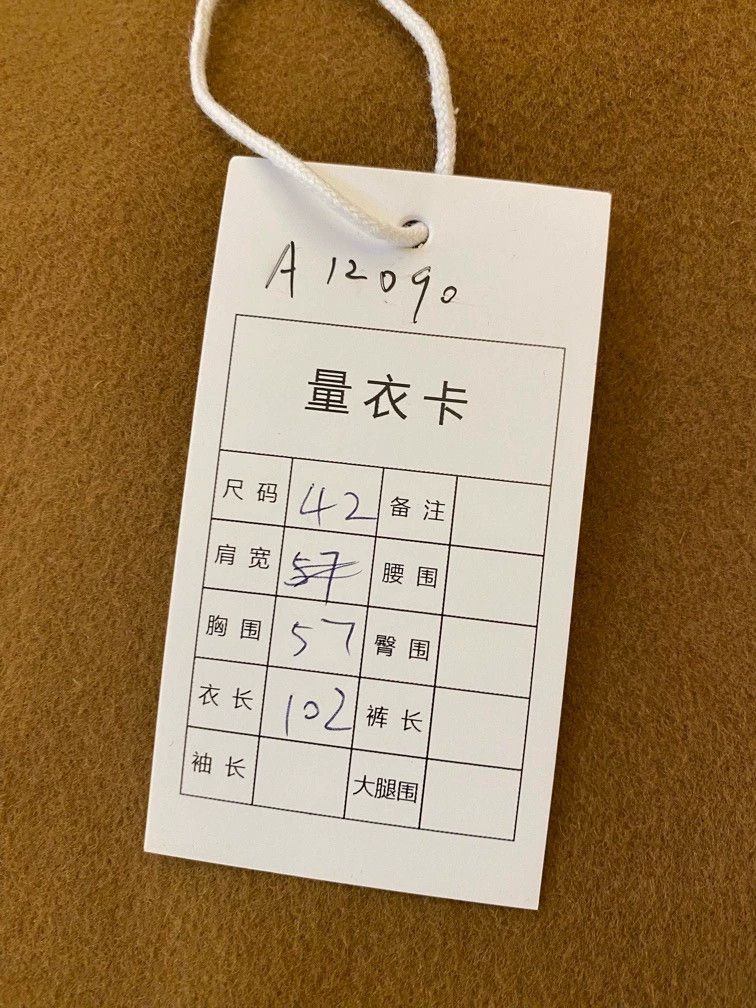 A12090
量衣卡
尺码 42 备注
肩宽 57 腰围
胸围 57 臀围
衣长 102 裤长
袖长 大腿围